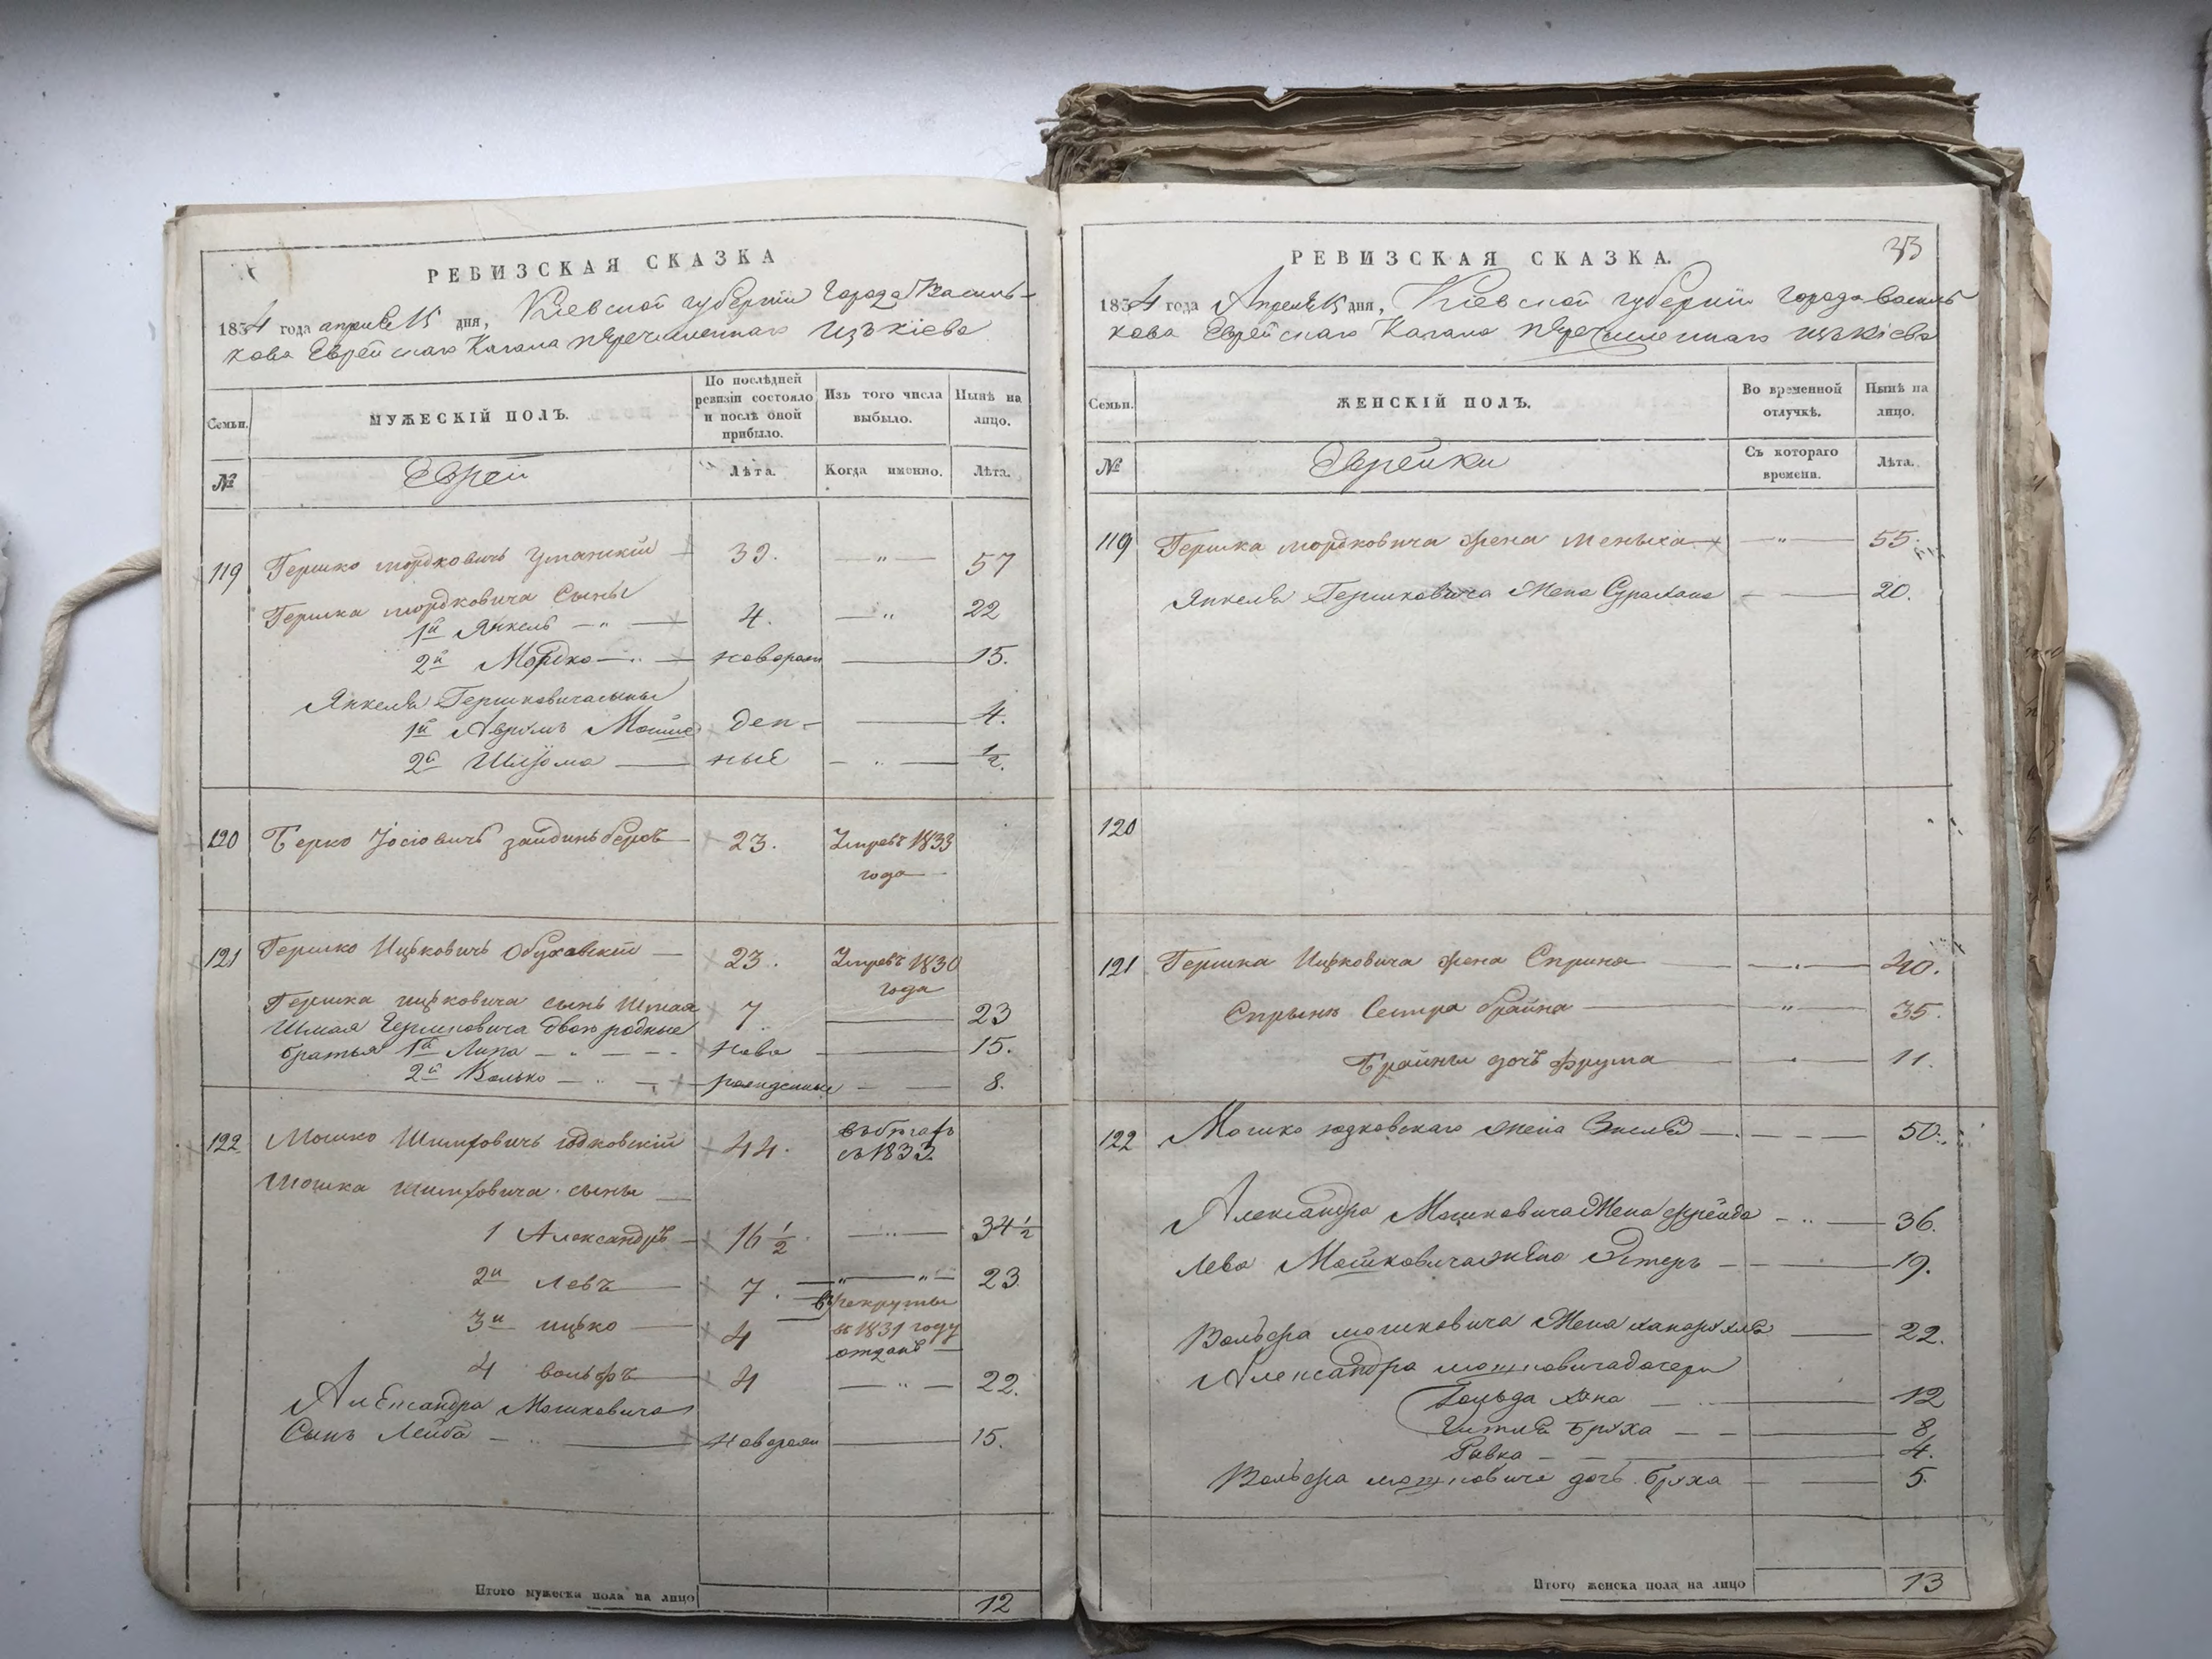 РЕВИЗСКАЯ СКАЗКА
1834 года апреля 15 дня, Киевской губернии Города Василь-
кова Еврейскаго Кагала перечисленнаго Изъ кіева
Семьи.
МУЖЕСКІЙ ПОЛЪ.
По послѣдней ревизіи состояло и послѣ оной прибыло.
Изъ того числа выбыло.
Нынѣ на лицо.
№
Еврей
Лѣта.
Когда именно.
Лѣта.
119 Гершко мордковичъ Уманскій 39. — " — 57
Гершка мордковича Сыны
1й Янкель — " — 4. — " 22
2й Мордко — новорож — 15.
Янкеля Гершковича сыны
1й Аврумъ Мошко — 4.
2й Шлiома — ные — 1/2.
120 Берко Іосіовичъ 23. Умревъ 1833
года
121 Гершко Ицковичъ Обуховскій — 23. Умревъ 1830
года
Гершка ицковича сынъ Шмая 7. — 23
Шмая Гершковича двоюродные
братья 1й Липа — ново — 15.
2й Волько — рожденные — 8.
122 Мошко Шимховичъ юдковскій 44. въ бегахъ
съ 1833.
Мошка Шимховича сыны —
1 Александръ — 16 1/2 — 34 1/2
2й Левъ — 7. — " — " — 23
3й ицко — 4 въ рекруты
въ 1831 году
отданъ —
4 вольфъ — 4 — 22.
Александра Мошковича
Сынъ Лейба — новорож — 15.
Итого мужеска пола на лицо 12
РЕВИЗСКАЯ СКАЗКА.
33
1834 года Апреля 15 дня, Кіевской губерніи города Василь
кова Еврейскаго Кагала перечисленнаго изъ кіева
Семьи.
ЖЕНСКІЙ ПОЛЪ.
Во временной отлучкѣ.
Нынѣ на лицо.
№
Еврейки
Съ котораго времена.
Лѣта.
119 Гершка мордковича жена Меныха — " — 55.
Янкеля Гершковича жена — 20.
120
121 Гершка Ицковича жена Сприна — 40.
Спрыны Сестра брайна — " — 35.
Брайны дочь фрума — 11.
122 Мошко юдковскаго жена — 50.
Александра Мошковича Жена фрейда — 36.
Лева Мошковича жена Эстеръ — 19.
Вольфа мошковича Жена — 22.
Александра мошковича дочери
Гольда Хана — 12
Бруха — 8
Ривка — 4.
Вольфа мошковича дочь бруха — 5.
Итого женска пола на лицо 13